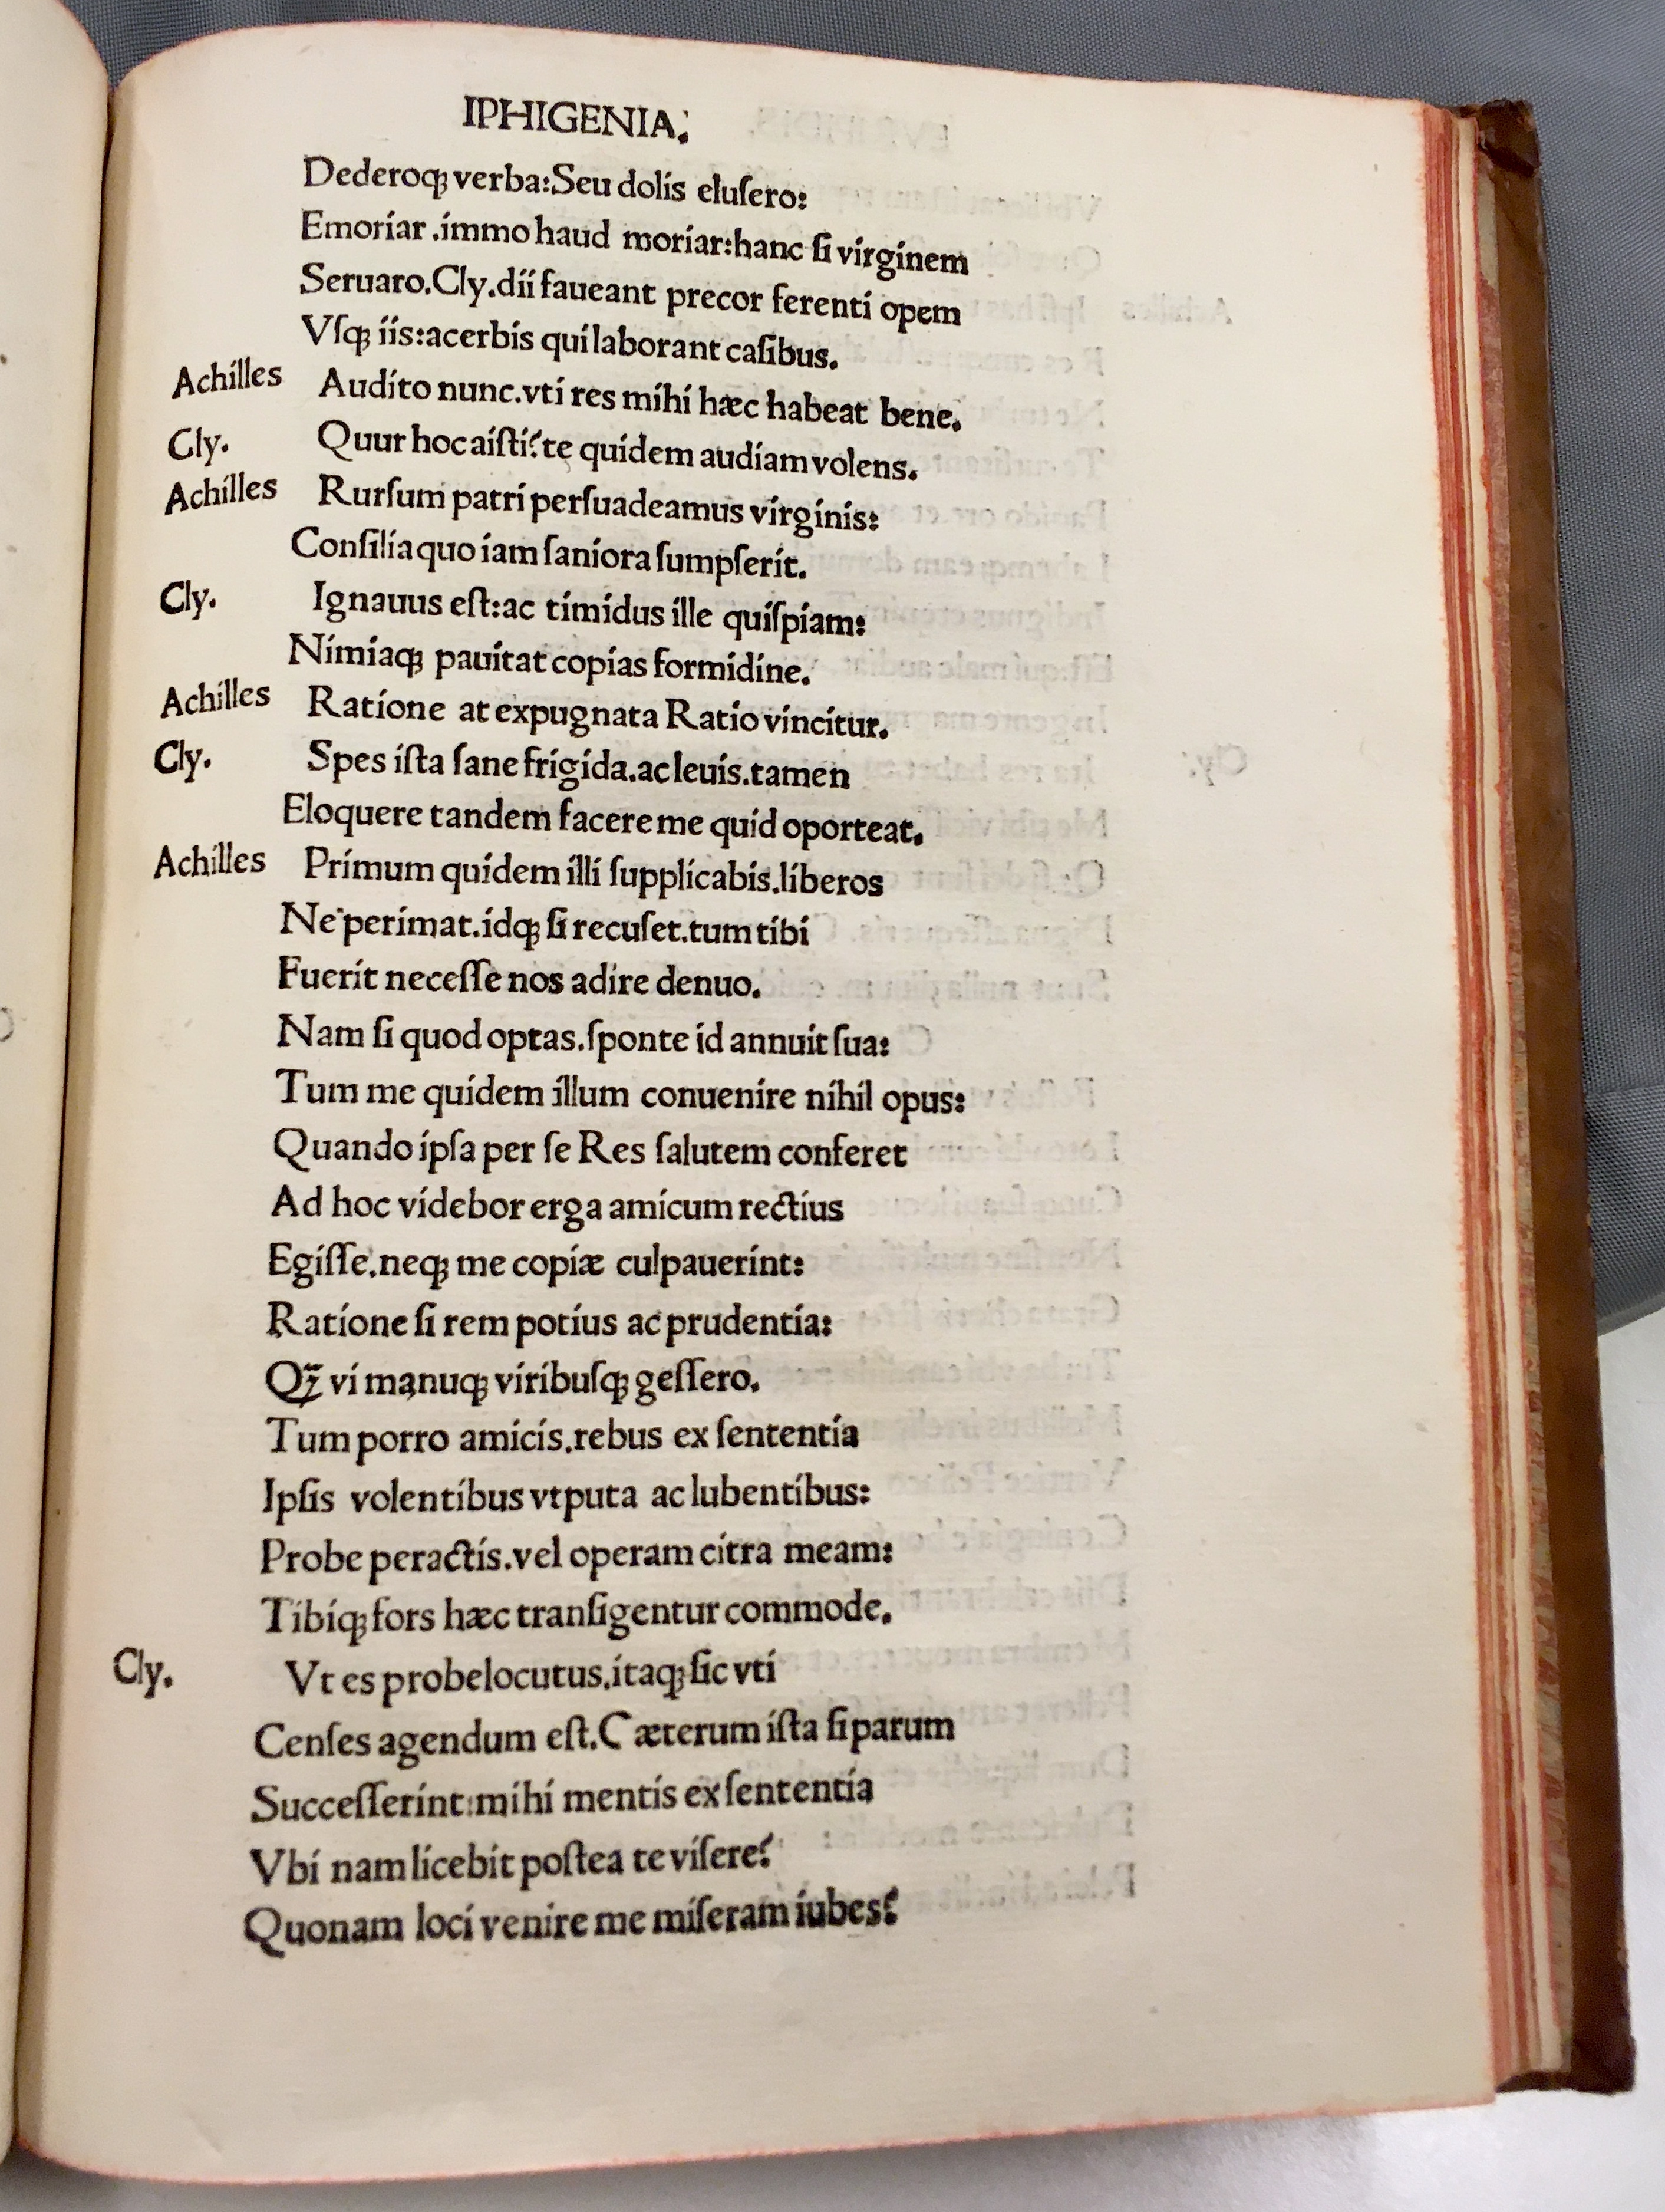 IPHIGENIA.
Dederoqꝫ verba:Seu dolis eluſero:
Emoriar .immo haud moriar:hanc ſi virginem
Seruaro.Cly.dii faueant precor ferenti opem
Vſqꝫ iis:acerbis qui laborant caſibus.
Achilles Audito nunc.vti res mihi hæc habeat bene.
Cly. Quur hoc aiſti?te quidem audiam volens.
Achilles Rurſum patri perſuadeamus virginis:
Conſilia quo iam ſaniora ſumpſerit.
Cly. Ignauus eſt:ac timidus ille quiſpiam:
Nimiaqꝫ pauitat copias formidine.
Achilles Ratione at expugnata Ratio vincitur.
Cly. Spes iſta ſane frigida.ac leuis.tamen
Eloquere tandem facere me quid oporteat.
Achilles Primum quidem illi ſupplicabis.liberos
Ne perimat.idqꝫ ſi recuſet.tum tibi
Fuerit neceſſe nos adire denuo.
Nam ſi quod optas.ſponte id annuit ſua:
Tum me quidem illum conuenire nihil opus:
Quando ipſa per ſe Res ſalutem conferet
Ad hoc videbor erga amicum rectius
Egiſſe.neqꝫ me copiæ culpauerint:
Ratione ſi rem potius ac prudentia:
Qꝫ̃ vi manuqꝫ viribuſqꝫ geſſero.
Tum porro amicis.rebus ex ſententia
Ipſis volentibus vtputa ac lubentibus:
Probe peractis.vel operam citra meam:
Tibiqꝫ fors hæc tranſigentur commode.
Cly. Vt es probe locutus.itaqꝫ ſic vti
Cenſes agendum eſt.Cæterum iſta ſi parum
Succeſſerint:mihi mentis ex ſententia
Vbi nam licebit poſtea te viſere?
Quonam loci venire me miſeram iubes?